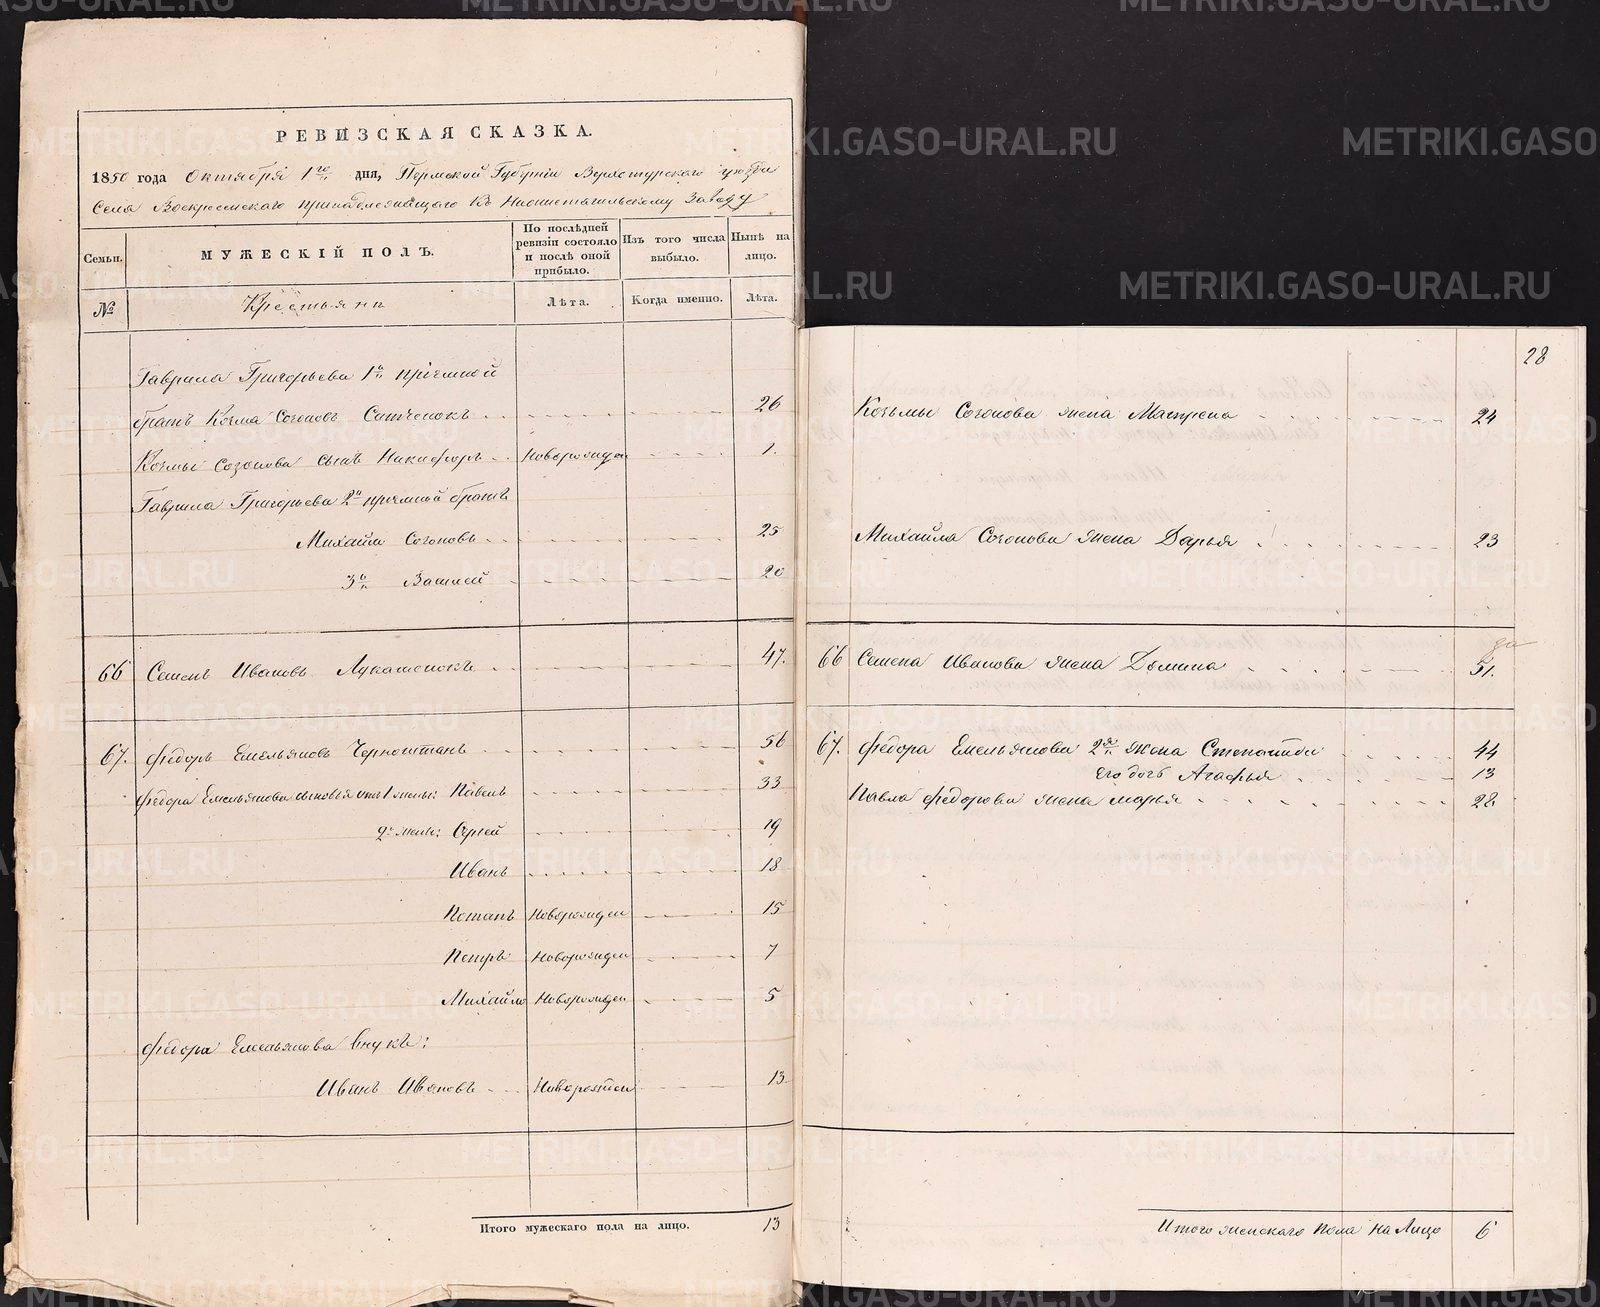 РЕВИЗСКАЯ СКАЗКА.
1850 года Октября 1го дня, Пермской Губерніи Верхотурскаго уѣзда
Села Воскресенскаго принадлежащаго къ Нижнетагильскому Заводу
Семьи.
МУЖЕСКІЙ ПОЛЪ.
По послѣдней ревизіи состояло и послѣ оной прибыло.
Изъ того числа выбыло.
Нынѣ на лицо.
№
Крестьяни
Лѣта.
Когда именно.
Лѣта.
Гаврила Григорьева 1й пріемной
братъ Козма Созоновъ 26
Козмы Созонова сынъ Никифоръ Новорожден 1.
Гаврила Григорьева 2й пріемный братъ
Михайло Созоновъ 25
3й Василей 20
66 Семенъ Ивановъ Лукашонокъ 47.
67. Федоръ Емельяновъ Черноштанъ 56
Федора Емельянова сыновья отъ 1 жены: Павелъ 33
2й жены: Сергей 19
Иванъ 18
Потапъ Новорожден 15
Петръ Новорожден 7
Михайло Новорожден 5
Федора Емельянова внукъ:
Иванъ Ивановъ Новорожден 13
Итого мужескаго пола на лицо. 13
28
Козьмы Созонова жена Матрена 24
Михайла Созонова жена Дарья 23
66 Семена Иванова жена Домина 51.
67. Федора Емельянова 2я жена Степанида 44
Его дочь Агафья 13
Павла Федорова жена Марья 28
Итого женскаго Пола на Лицо 6
METRIKI.GASO-URAL.RU